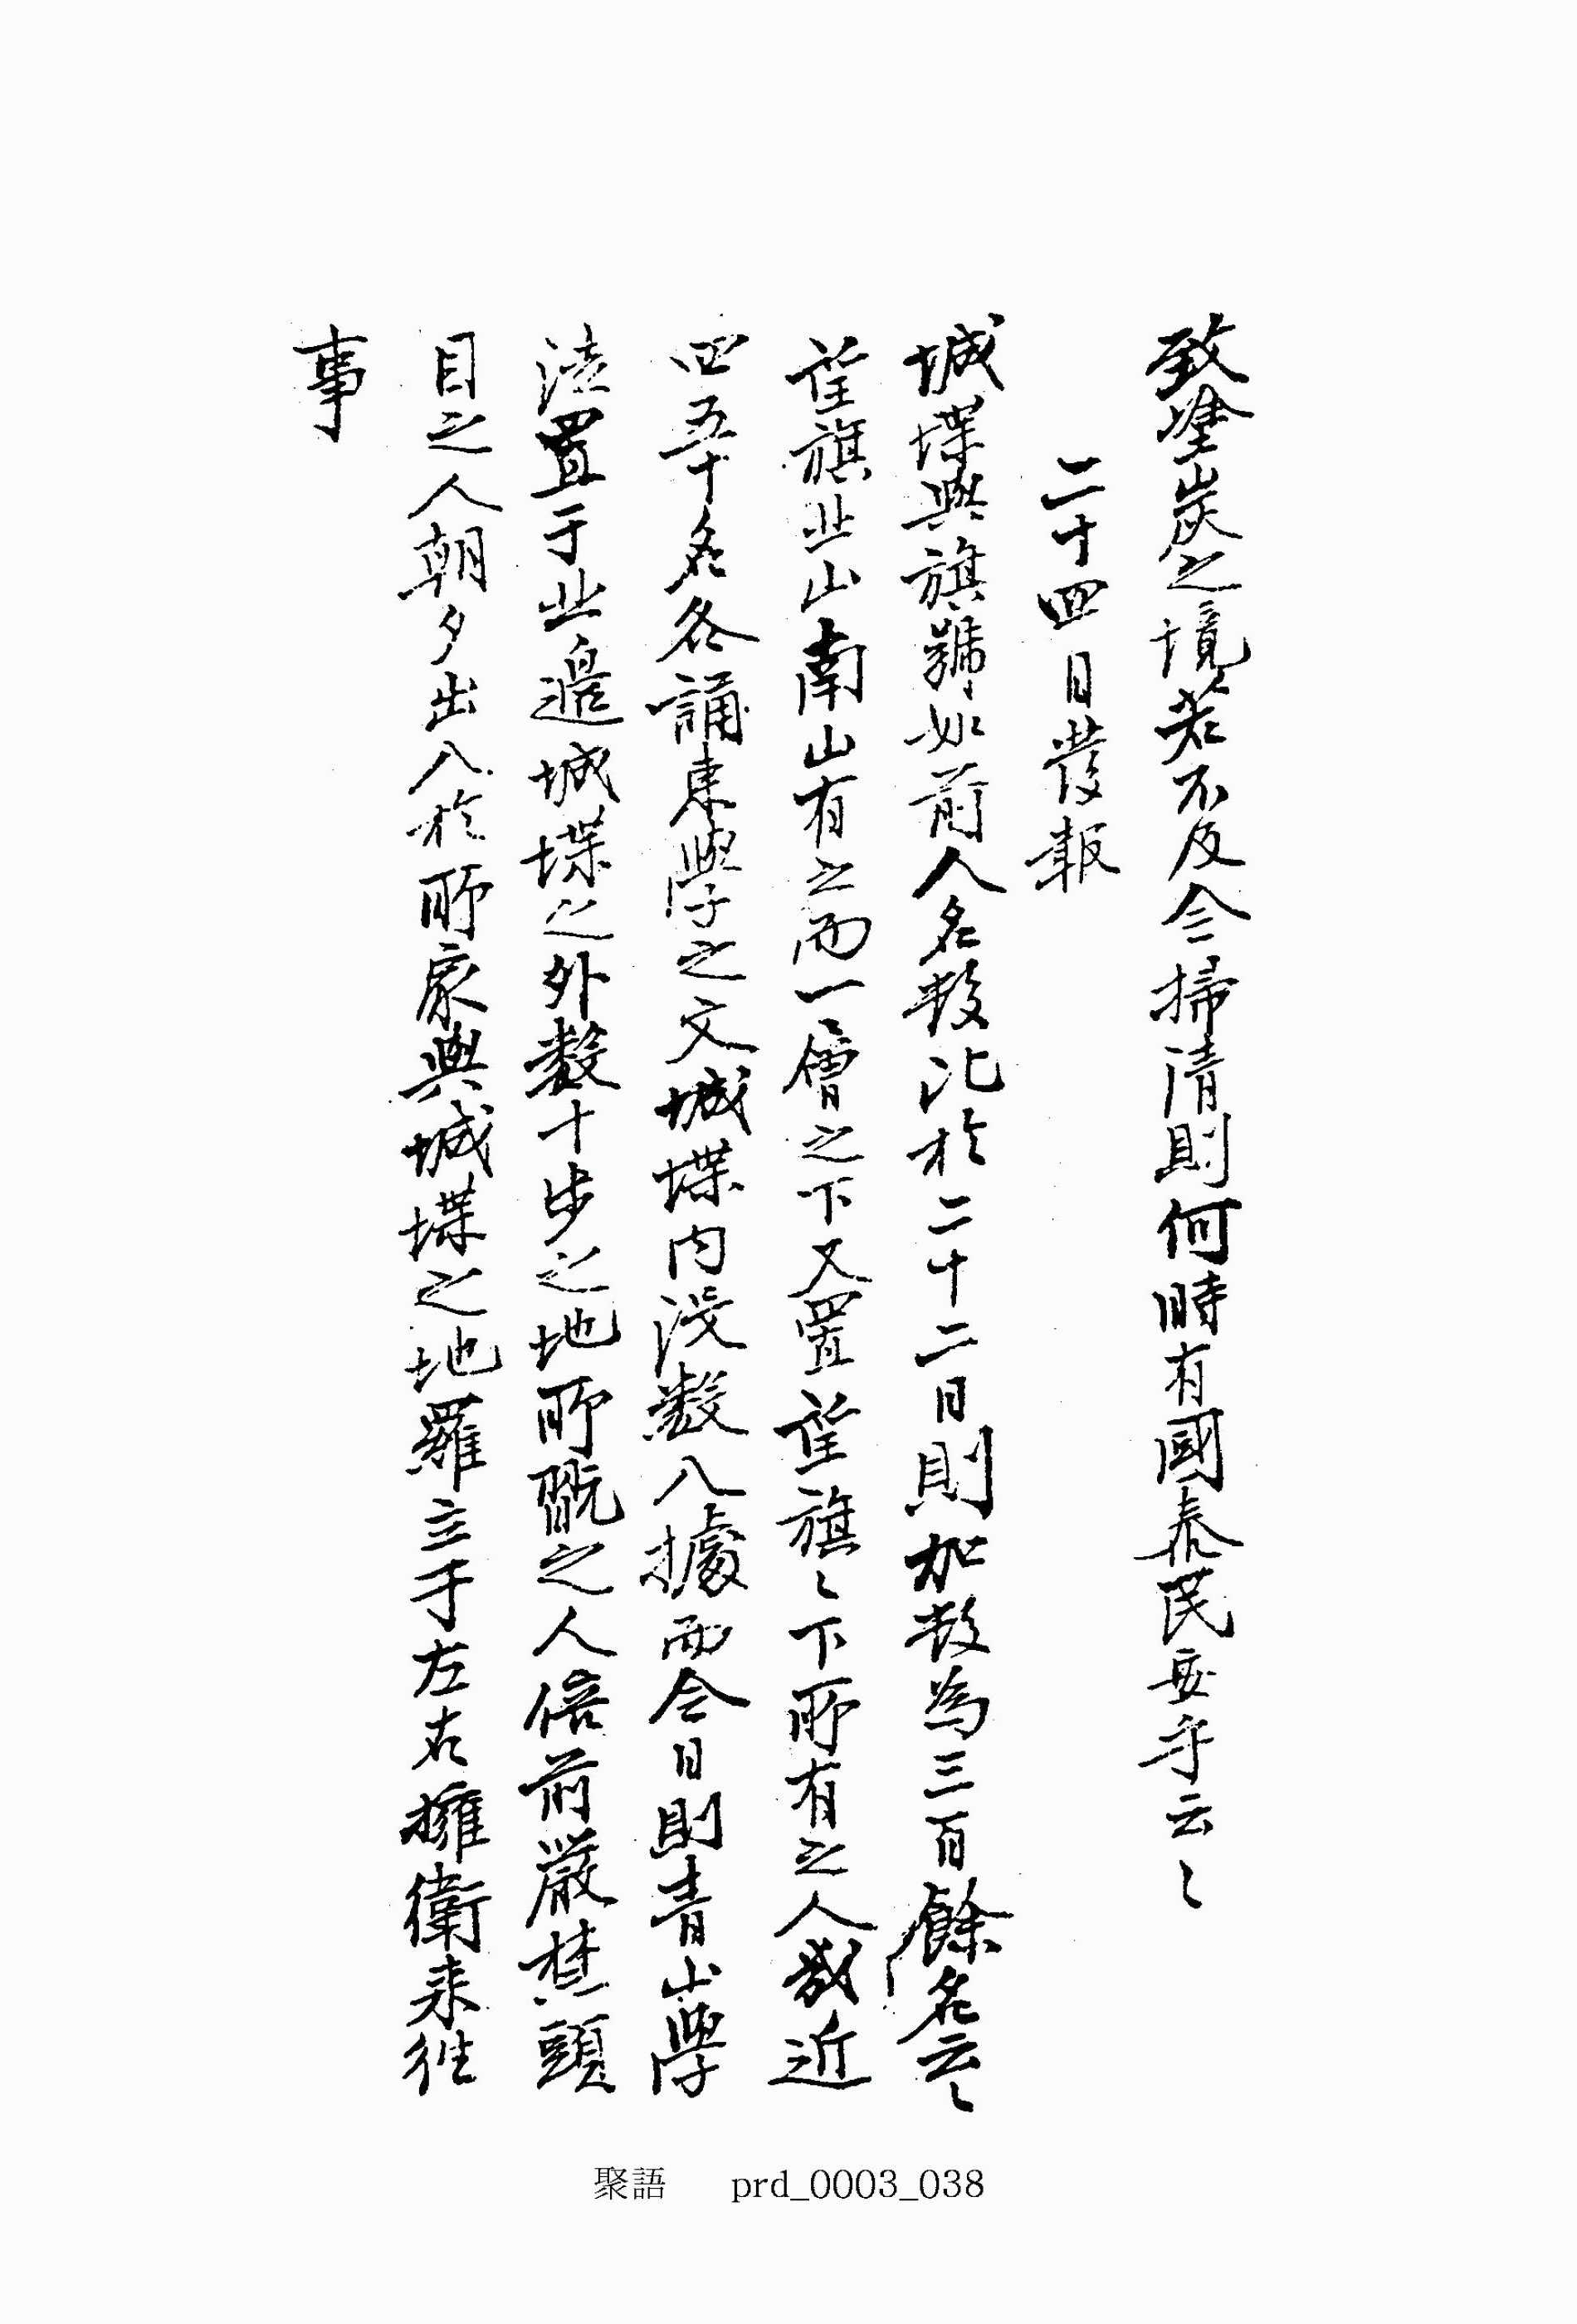 致塗炭之境若不及今掃清則何時有國泰民安乎云〻
二十四日發報
城堞與旗號如前人名数比於二十二日則加数為三百餘名云〻
望旗北山南山有之而一層之下又置望旗〻下所有之人数近
四五十名各誦東學之文城堞內沒数入據而今日則青山學
法置于北邊城堞之外数十步之地所翫之人倍前嚴禁頭
目之人朝夕出入於所家與城堞之地羅立于左右擁衛来往
事
聚語 prd_0003_038